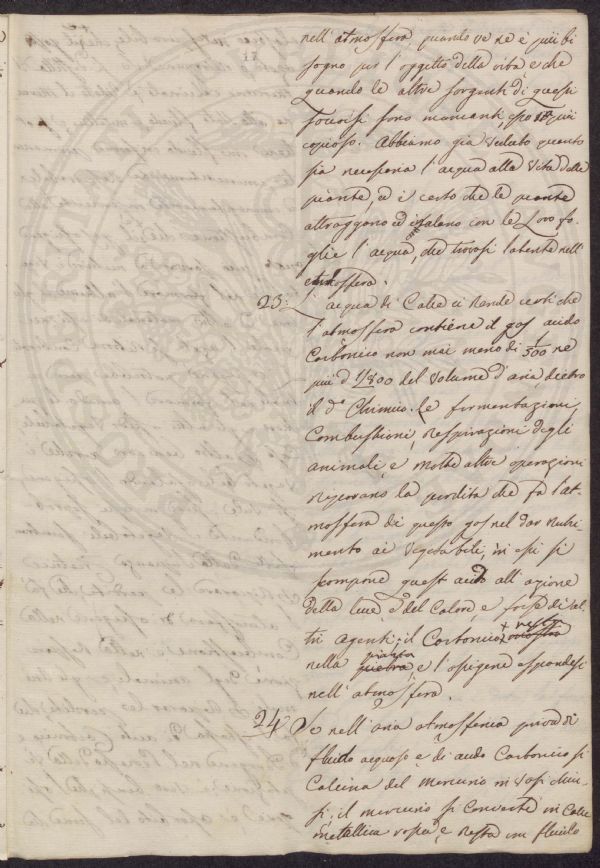 nell' atmosfera, quando ve ne è più bi
sogno per l' oggetto della vita, e che
quando le altre sorgenti di questi
soccorsi sono mancanti, essa è più
copiosa. Abbiamo già veduto quanto
sia necessaria l'acqua alla vita delle
piante, ed è certo che le piante
attraggono ed esalano con le Loro fo-
glie l'acqua, che trovasi latente nell'
atmosfera.
23. L' acqua di Calce ci Rende certi che
l'atmosfera contiene il gas acido
Carbonico non mai meno di 1/500 ne
più d' 1/800 del Volume d'aria, dietro
il do Chimico. Le fermentazioni,
Combustioni, Respirazioni degli
animali, e molte altre operazioni
Riparano la perdita che fa l'at-
mosfera di questo gas nel dar nutri-
mento ai Vegetabili, in essi si
scompone quest' acido all' azione
della luce, e del Calore, e forse di al-
tri agenti; il Carbonico resta
nella pianta e l'ossigene espandesi
nell' atmosfera.
24 Se nell' aria atmosferica priva di
fluido acquoso e di acido Carbonico si
Calcina del mercurio in Vasi chiu-
si; il mercurio si converte in Calce
metallica rossa, e Resta un fluido